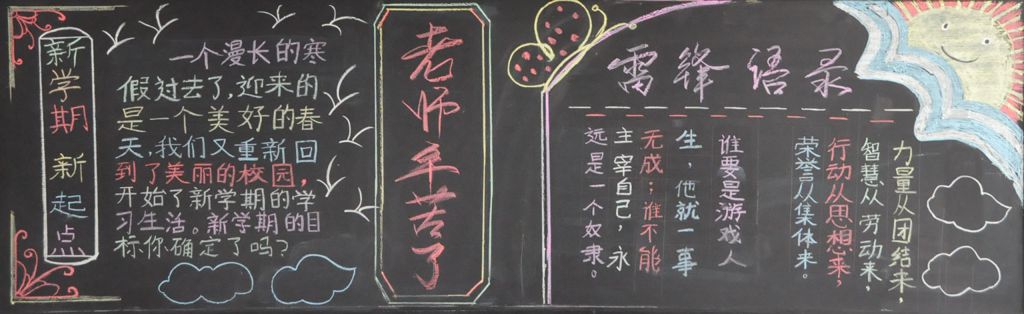 新学期 新起点
一个漫长的寒
假过去了,迎来的
是一个美好的春
天,我们又重新回
到了美丽的校园,
开始了新学期的学
习生活。新学期的目
标你确定了吗?
老师辛苦了
雷锋语录
力量从团结来,
智慧从劳动来,
行动从思想来,
荣誉从集体来。
谁要是游戏人
生,他就一事
无成;谁不能
主宰自己,永
远是一个奴隶。